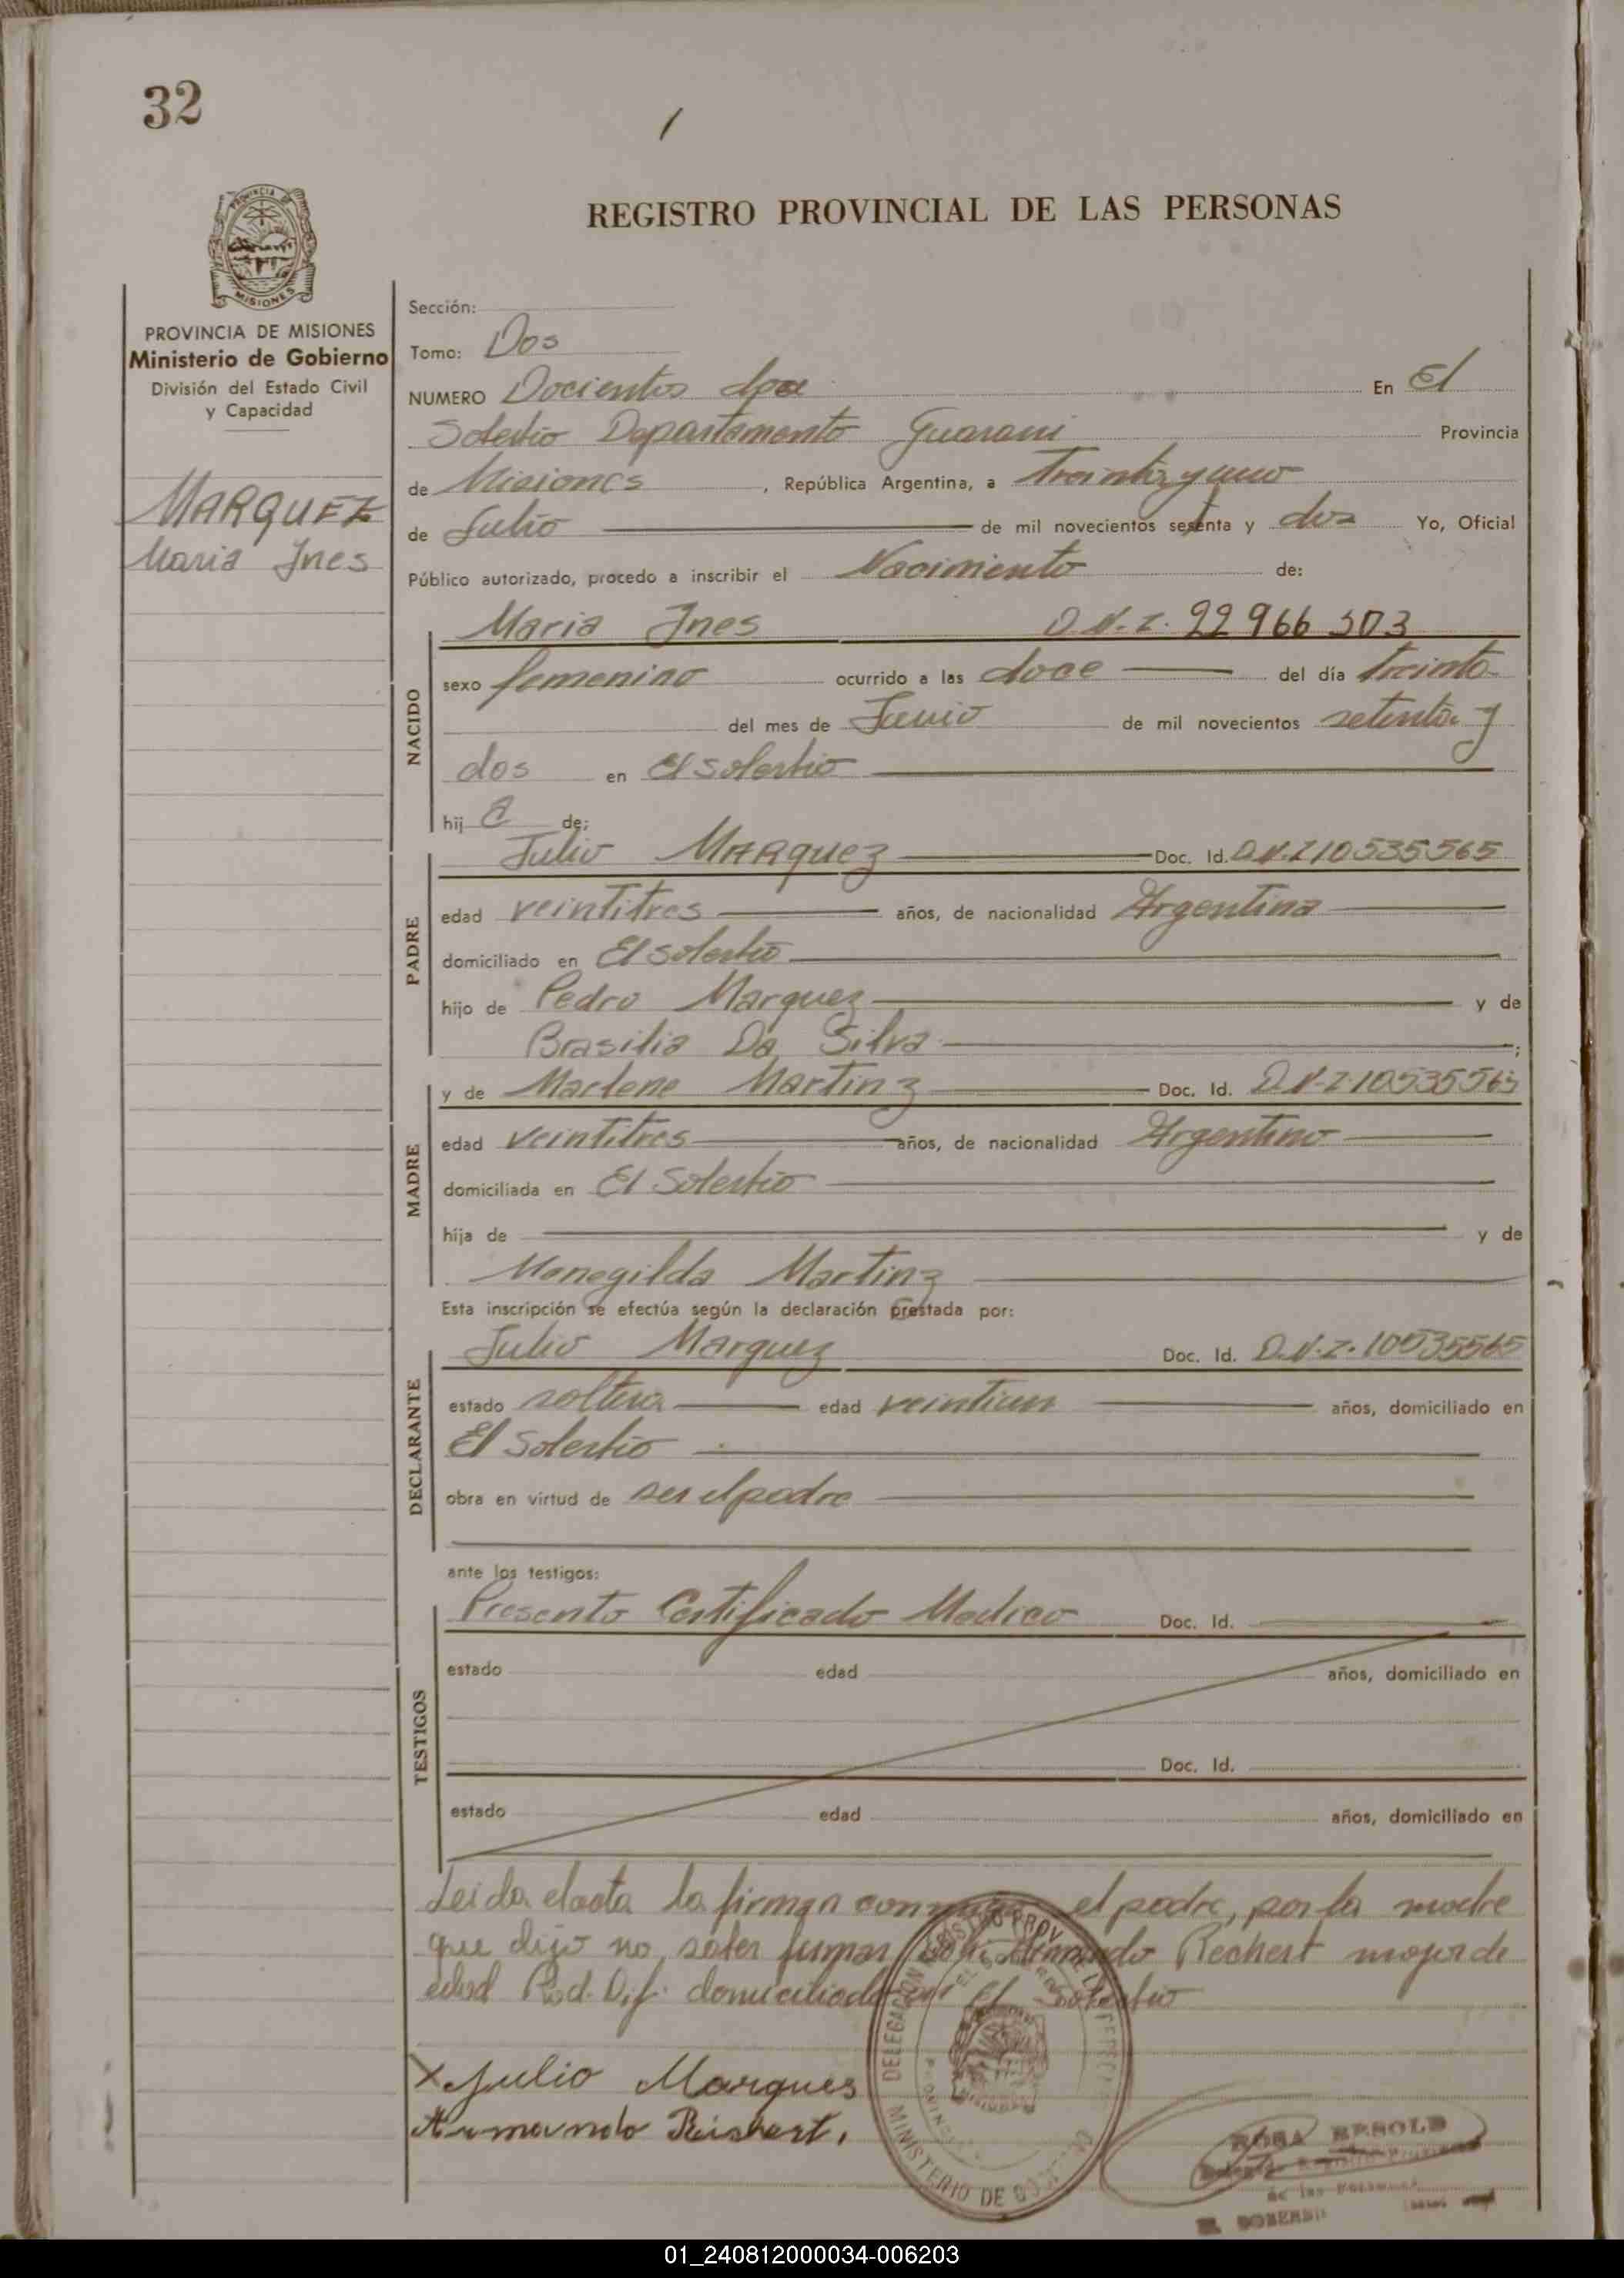 32
REGISTRO PROVINCIAL DE LAS PERSONAS
PROVINCIA DE
MISIONES
PROVINCIA DE MISIONES
Ministerio de Gobierno
División del Estado Civil
y Capacidad
MARQUEZ
Maria Ines
Sección:
Tomo: Dos
NUMERO Docientos dos En El
Soberbio Departamento Guarani Provincia
de Misiones, República Argentina, a Treinta y uno
de Julio de mil novecientos sesenta y dos Yo, Oficial
Público autorizado, procedo a inscribir el Nacimiento de:
NACIDO
Maria Ines D.N.I. 22966303
sexo femenino ocurrido a las doce del día treinta
del mes de Junio de mil novecientos setenta y
dos en El Soberbio
hij a de;
PADRE
Julio MARquez Doc. Id. D.N.I 10535565
edad veintitres años, de nacionalidad Argentina
domiciliado en El Soberbio
hijo de Pedro Marquez y de
Brasilia Da Silva ;
MADRE
y de Marlene Martinz Doc. Id. D.N.I.10535565
edad veintitres años, de nacionalidad Argentina
domiciliada en El Soberbio
hija de y de
Menegilda Martinz
Esta inscripción se efectúa según la declaración prestada por:
DECLARANTE
Julio Marquez Doc. Id. D.N.I.
estado soltero edad años, domiciliado en
El Soberbio
obra en virtud de ser el padre
ante los testigos:
TESTIGOS
Presento Certificado Medico Doc. Id.
estado edad años, domiciliado en
Doc. Id.
estado edad años, domiciliado en
Leida el acta la firman conmigo el padre, por la madre
que dijo no saber firmar Armando Rechert mayor de
edad domiciliado en El Soberbio
X Julio Marques
Armando Reichert.
DELEGACION REGISTRO PROV. DE LAS PERSONAS
MINISTERIO DE GOBIERNO
ROSA BESOLD
de las Personas
EL SOBERBIO
01_240812000034-006203